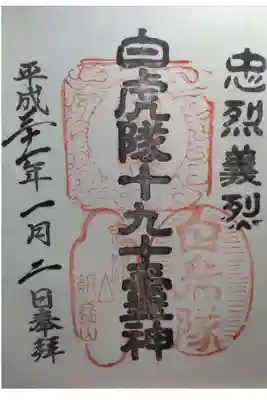 忠烈義烈
白虎隊十九士靈神
平成二十一年一月二日奉拝
白虎隊
飯盛山